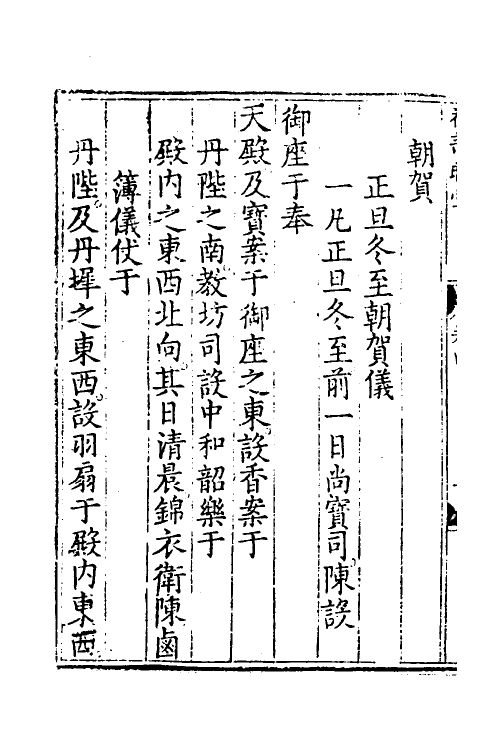 朝賀
正旦冬至朝賀儀
一凡正旦冬至前一日尚寶司陳設
御座于奉
天殿及寶案于御座之東設香案于
丹陛之南教坊司設中和韶樂于
殿内之東西北向其日清晨錦衣衛陳鹵
簿儀仗于
丹陛及丹墀之東西設羽扇于殿内東西